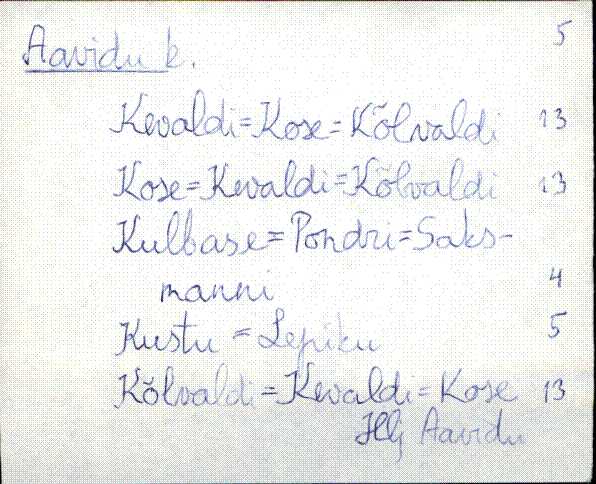 Aavidu k. 5
Kevaldi=Kose=Kõlvaldi 13
Kose=Kevaldi=Kõlvaldi 13
Kulbase=Pondri=Saks-
manni 4
Kustu=Lepiku 5
Kõlvaldi=Kevaldi=Kose 13
Hlj Aavidu